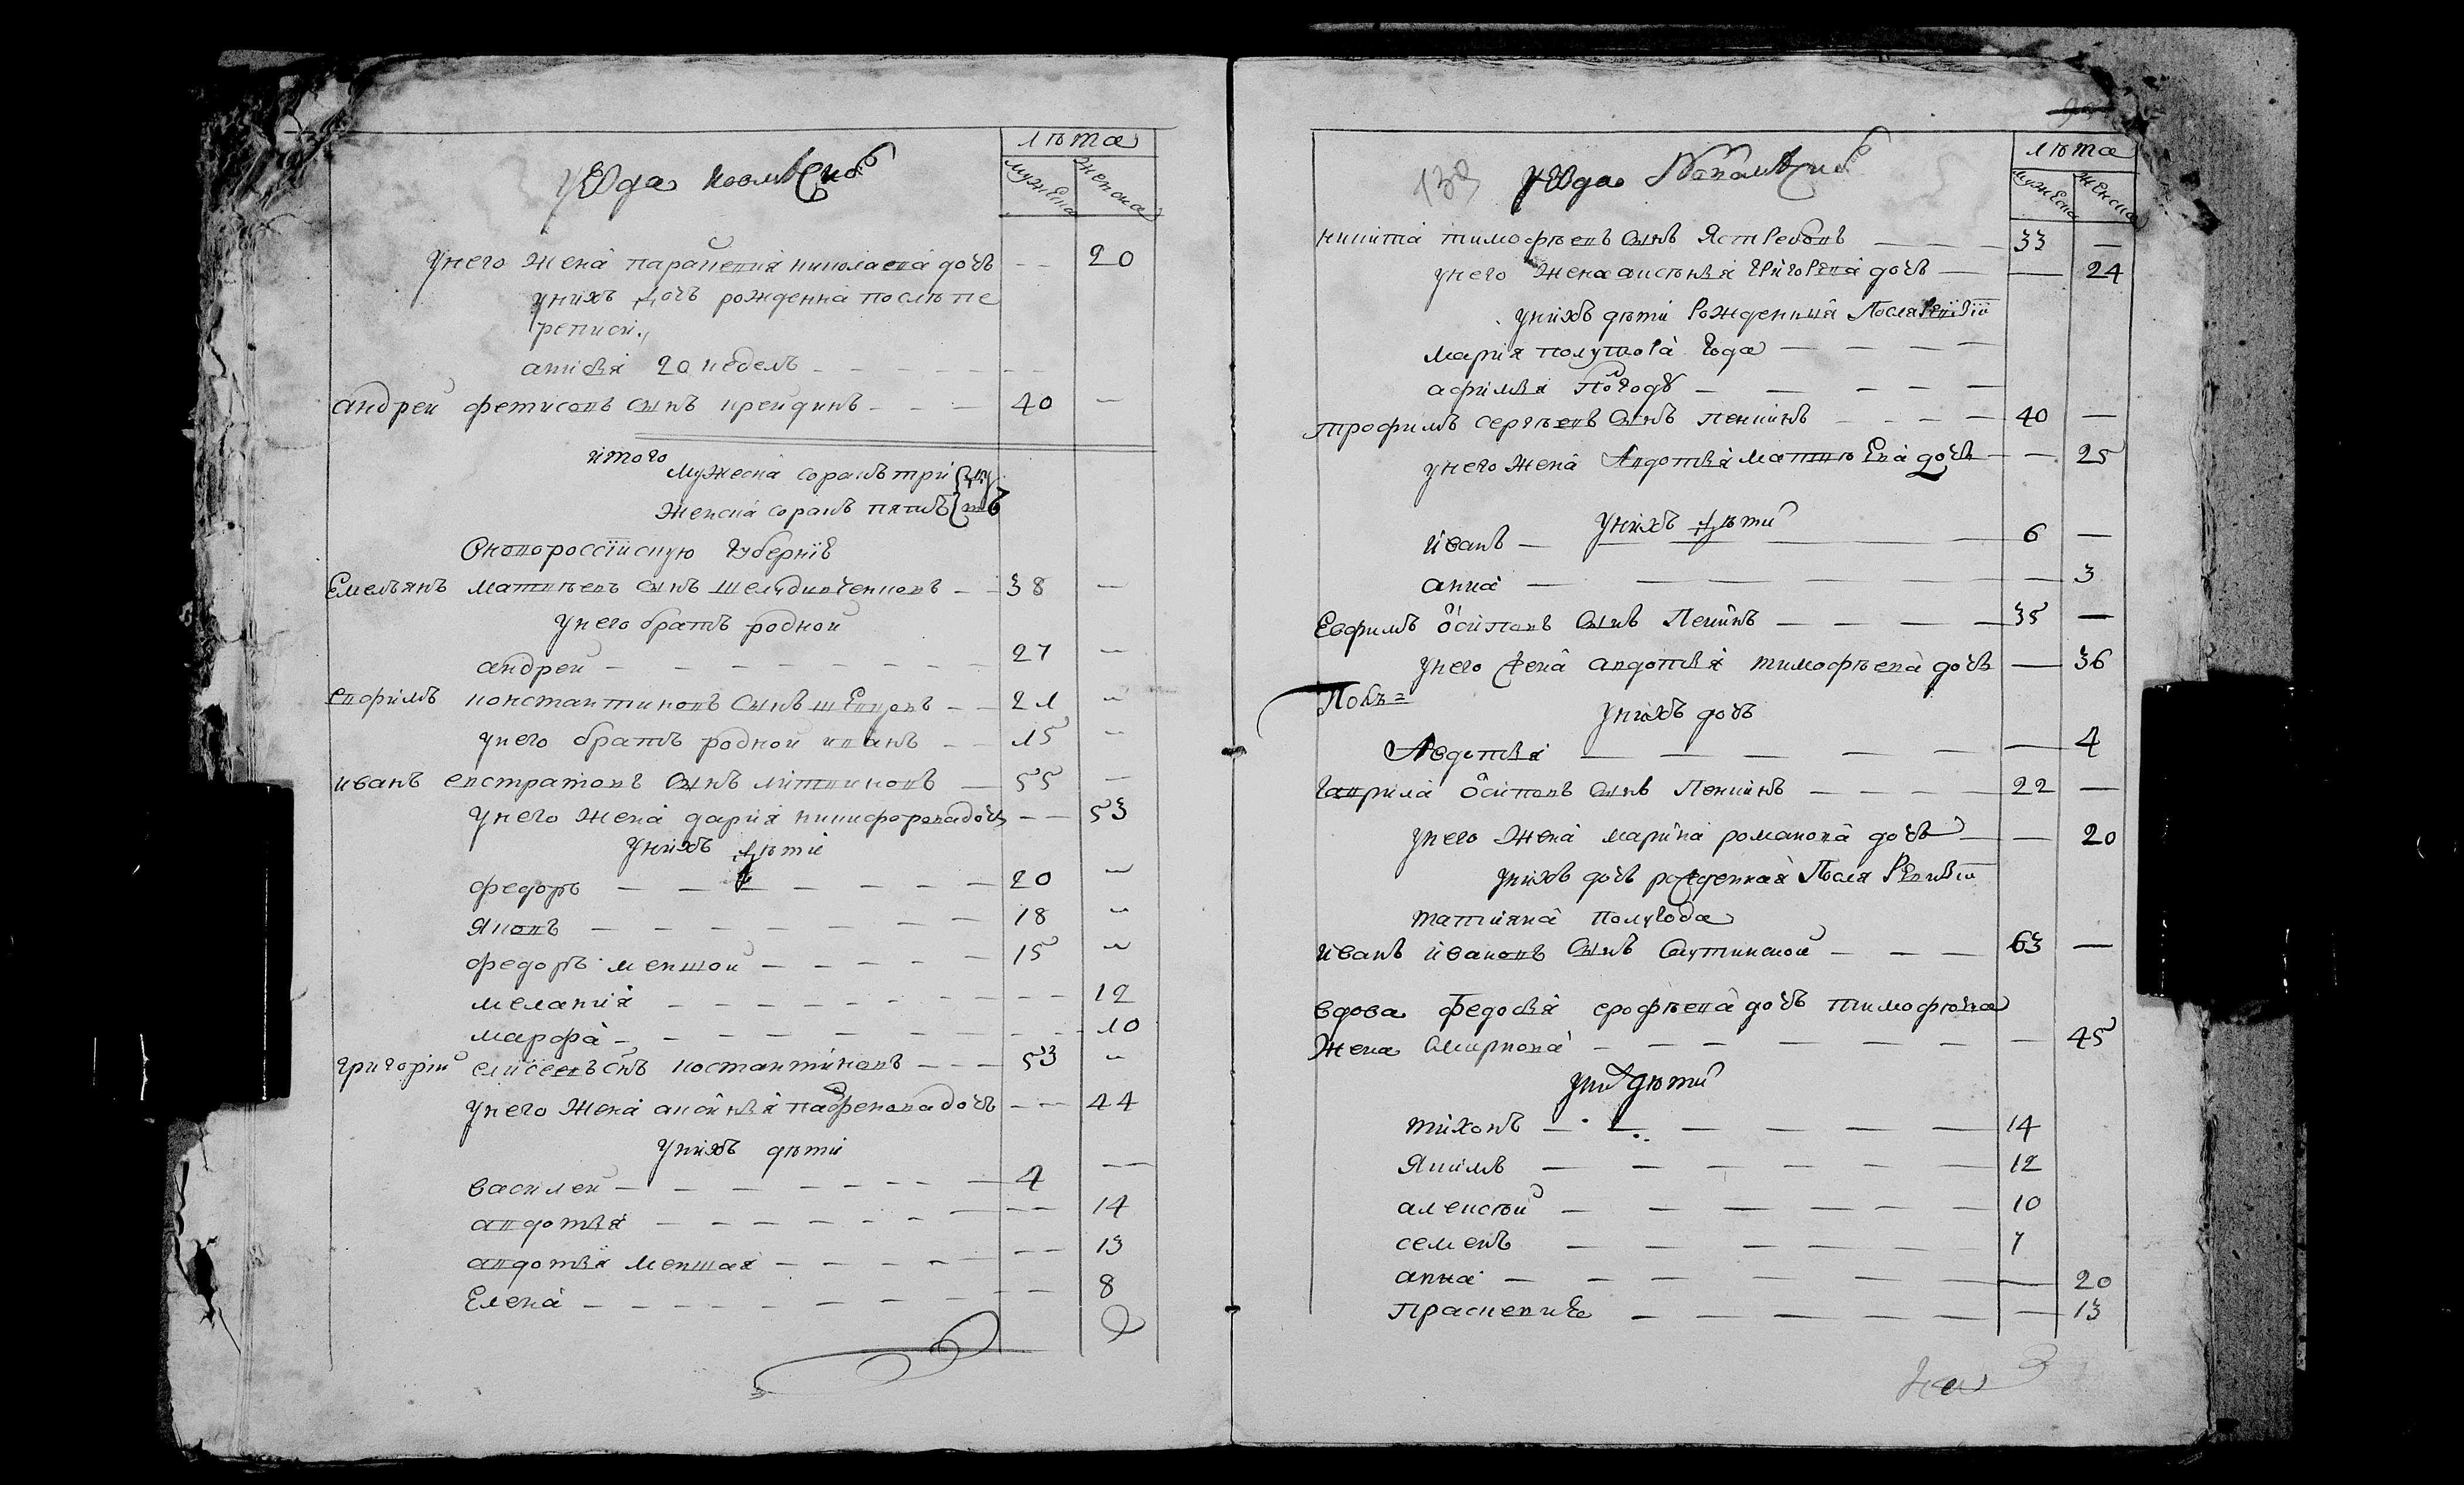 лѣта
мужеска
женска
у него жена параскевия николаева дочь — 20
у нихъ дочь рожденна после пе
реписи
анисья 20 недель
андрей фетисовъ сынъ крейдинъ — 40 —
итого
мужеска сорокъ три
женска сорокъ пять
Оновороссійскую губернію
Емельянъ матвѣевъ сынъ — 38 —
у него братъ родной
андрей — 27 —
евфимъ константиновъ сынъ шевцовъ — 21 —
у него братъ родной иванъ — 15 —
иванъ евстратовъ сынъ литвиновъ — 55 —
у него жена дарія никифорова дочь — 53
у нихъ дѣти
федоръ — 20 —
яковъ — 18 —
федоръ меншой — 15 —
меланія — 12
марфа — 10
григорій елисеевъ снъ костантиновъ — 53 —
у него жена аксинья парфенова дочь — 44
у нихъ дѣти
василей — 4 —
авдотья — 14
авдотья меншая — 13
Елена — 8
лѣта
мужеска
женска
никита тимофѣевъ сынъ Ястребовъ — 33 —
у него жена григорева дочь — 24
у нихъ дѣти рожденныя После ревизіи
мария полутора года
афимья по году
трофимъ сергѣевъ сынъ пенкинъ — 40 —
у него жена Авдотья матвѣева дочь — 25
у нихъ дѣти
иванъ — 6 —
анна — 3
Евфимъ осиповъ сынъ — 35 —
у него жена авдотья тимофѣева дочь — 36
у нихъ дочь
Авдотья — 4
гаврила осиповъ сынъ Пенкинъ — 22 —
у него жена марина романова дочь — 20
у нихъ дочь рожденная После Ревизіи
татияна полугода
иванъ ивановъ сынъ — 63 —
вдова федосья ерофѣева дочь тимофѣева
жена смирнова — 45
у них дѣти
тихонъ — 14
якимъ — 12
алексѣй — 10
семенъ — 7
анна — 20
— 13